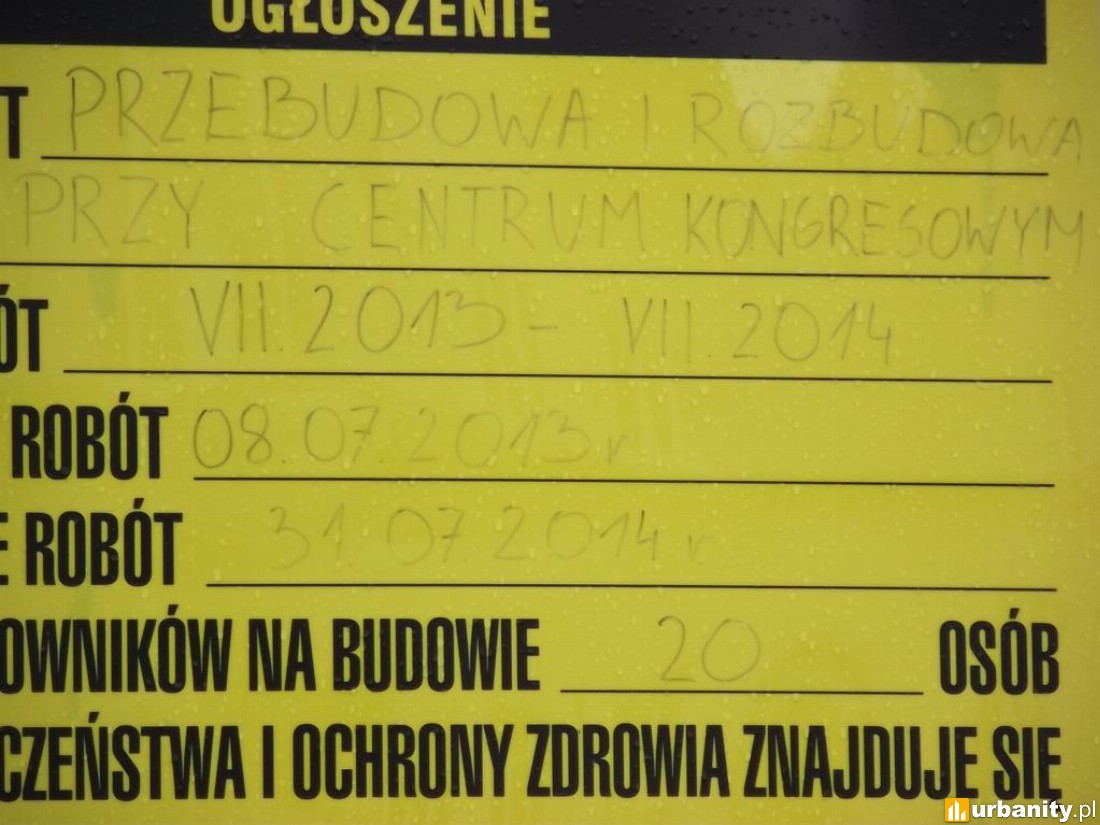 OGŁOSZENIE
T PRZEBUDOWA I ROZBUDOWA
PRZY CENTRUM KONGRESOWYM
ÓT VII.2013 - VII.2014
ROBÓT 08.07.2013 r
E ROBÓT 31.07.2014 r
OWNIKÓW NA BUDOWIE 20 OSÓB
CZEŃSTWA I OCHRONY ZDROWIA ZNAJDUJE SIĘ
urbanity.pl